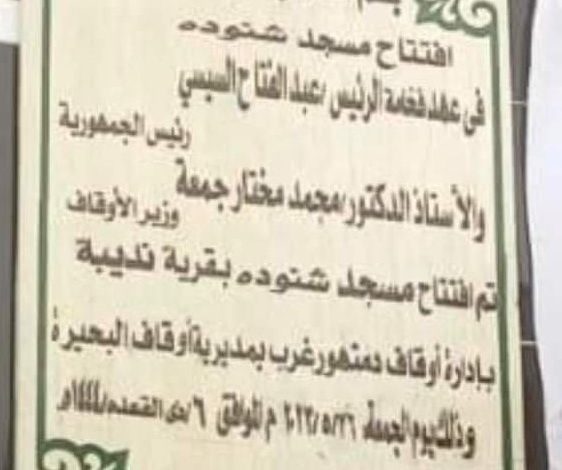 افتتاح مسجد شنوده
في عهد فخامة الرئيس /عبد الفتاح السيسي
رئيس الجمهورية
والأستاذ الدكتور/محمد مختار جمعة
وزير الأوقاف
تم افتتاح مسجد شنوده بقرية نديبة
بإدارة أوقاف دمنهور غرب بمديرية أوقاف البحيرة
وذلك يوم الجمعة ٢٠٢٣/٥/٢٦ م الموافق ٦/ذى القعده/١٤٤٤هـ